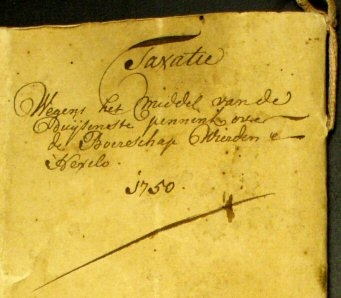 Taxatie
Wegens het middel van de
Duÿsenste pennink over
de Boereschap Wierden e
Hexelo.
1750.